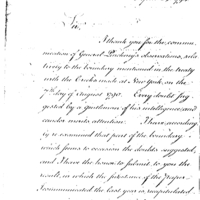 Sir,
I thank you for the commu-
nication of General Pinckney's observations, rela-
tively to the boundary mentioned in the treaty
with the Creeks made at New York, on the
7th day of August 1790. Every doubt sug-
gested by a gentleman of his intelligence and
candor merits attention. I have accordingly
re-examined that part of the boundary
which seems to occasion the doubts suggested,
and I have the honor to submit to you the
result, in which the positions of the paper
I communicated the last year is recapitulated